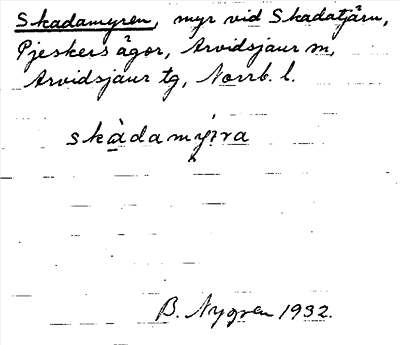 Skadamyren, myr vid Skadatjärn,
Pjeskers ägor, Arvidsjaur sn,
Arvidsjaur tg, Norrb. l.
skàdamýira
B. Nygren 1932.